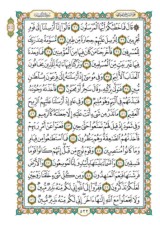 قَالَ فَمَا خَطْبُكُمْ أَيُّهَا الْمُرْسَلُونَ قَالُوا إِنَّا أُرْسِلْنَا إِلَىٰ قَوْمٍ
مُّجْرِمِينَ لِنُرْسِلَ عَلَيْهِمْ حِجَارَةً مِّن طِينٍ مُّسَوَّمَةً عِندَ رَبِّكَ
لِلْمُسْرِفِينَ فَأَخْرَجْنَا مَن كَانَ فِيهَا مِنَ الْمُؤْمِنِينَ فَمَا وَجَدْنَا
فِيهَا غَيْرَ بَيْتٍ مِّنَ الْمُسْلِمِينَ وَتَرَكْنَا فِيهَا آيَةً لِّلَّذِينَ يَخَافُونَ
الْعَذَابَ الْأَلِيمَ وَفِي مُوسَىٰ إِذْ أَرْسَلْنَاهُ إِلَىٰ فِرْعَوْنَ بِسُلْطَانٍ
مُّبِينٍ فَتَوَلَّىٰ بِرُكْنِهِ وَقَالَ سَاحِرٌ أَوْ مَجْنُونٌ فَأَخَذْنَاهُ وَجُنُودَهُ
فَنَبَذْنَاهُمْ فِي الْيَمِّ وَهُوَ مُلِيمٌ وَفِي عَادٍ إِذْ أَرْسَلْنَا عَلَيْهِمُ الرِّيحَ
الْعَقِيمَ مَا تَذَرُ مِن شَيْءٍ أَتَتْ عَلَيْهِ إِلَّا جَعَلَتْهُ كَالرَّمِيمِ
وَفِي ثَمُودَ إِذْ قِيلَ لَهُمْ تَمَتَّعُوا حَتَّىٰ حِينٍ فَعَتَوْا عَنْ أَمْرِ رَبِّهِمْ
فَأَخَذَتْهُمُ الصَّاعِقَةُ وَهُمْ يَنظُرُونَ فَمَا اسْتَطَاعُوا مِن قِيَامٍ
وَمَا كَانُوا مُنتَصِرِينَ وَقَوْمَ نُوحٍ مِّن قَبْلُ إِنَّهُمْ كَانُوا قَوْمًا
فَاسِقِينَ وَالسَّمَاءَ بَنَيْنَاهَا بِأَيْيدٍ وَإِنَّا لَمُوسِعُونَ وَالْأَرْضَ
فَرَشْنَاهَا فَنِعْمَ الْمَاهِدُونَ وَمِن كُلِّ شَيْءٍ خَلَقْنَا زَوْجَيْنِ
لَعَلَّكُمْ تَذَكَّرُونَ فَفِرُّوا إِلَى اللَّهِ إِنِّي لَكُم مِّنْهُ نَذِيرٌ مُّبِينٌ
وَلَا تَجْعَلُوا مَعَ اللَّهِ إِلَٰهًا آخَرَ إِنِّي لَكُم مِّنْهُ نَذِيرٌ مُّبِينٌ
٥٢٢